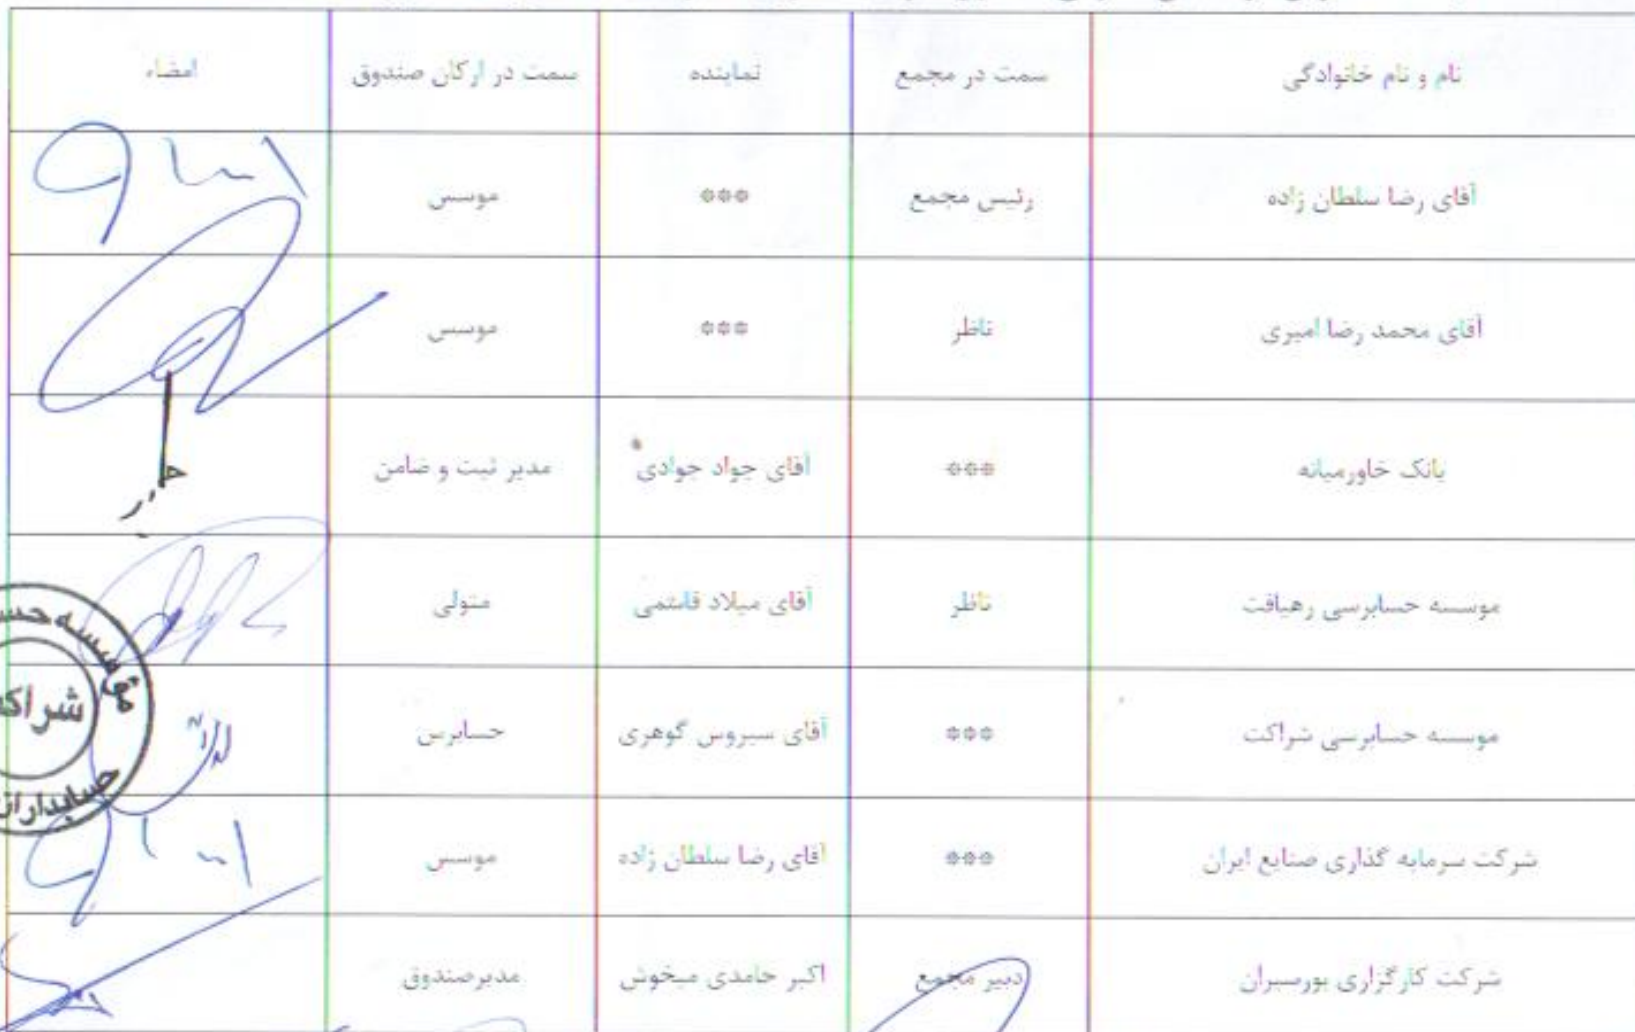 نام و نام خانوادگی سمت در مجمع نماینده سمت در ارکان صندوق امضاء
آقای رضا سلطان زاده رئیس مجمع *** موسس
آقای محمد رضا امیری ناظر *** موسس
بانک خاورمیانه *** آقای جواد جوادی مدیر ثبت و ضامن
موسسه حسابرسی رهیافت ناظر آقای میلاد قاسمی متولی
موسسه حسابرسی شراکت *** آقای سیروس گوهری حسابرس
شرکت سرمایه گذاری صنایع ایران *** آقای رضا سلطان زاده موسس
شرکت کارگزاری بورسیران دبیر مجمع اکبر حامدی میخوش مدیرصندوق
موسسه
حسابداران